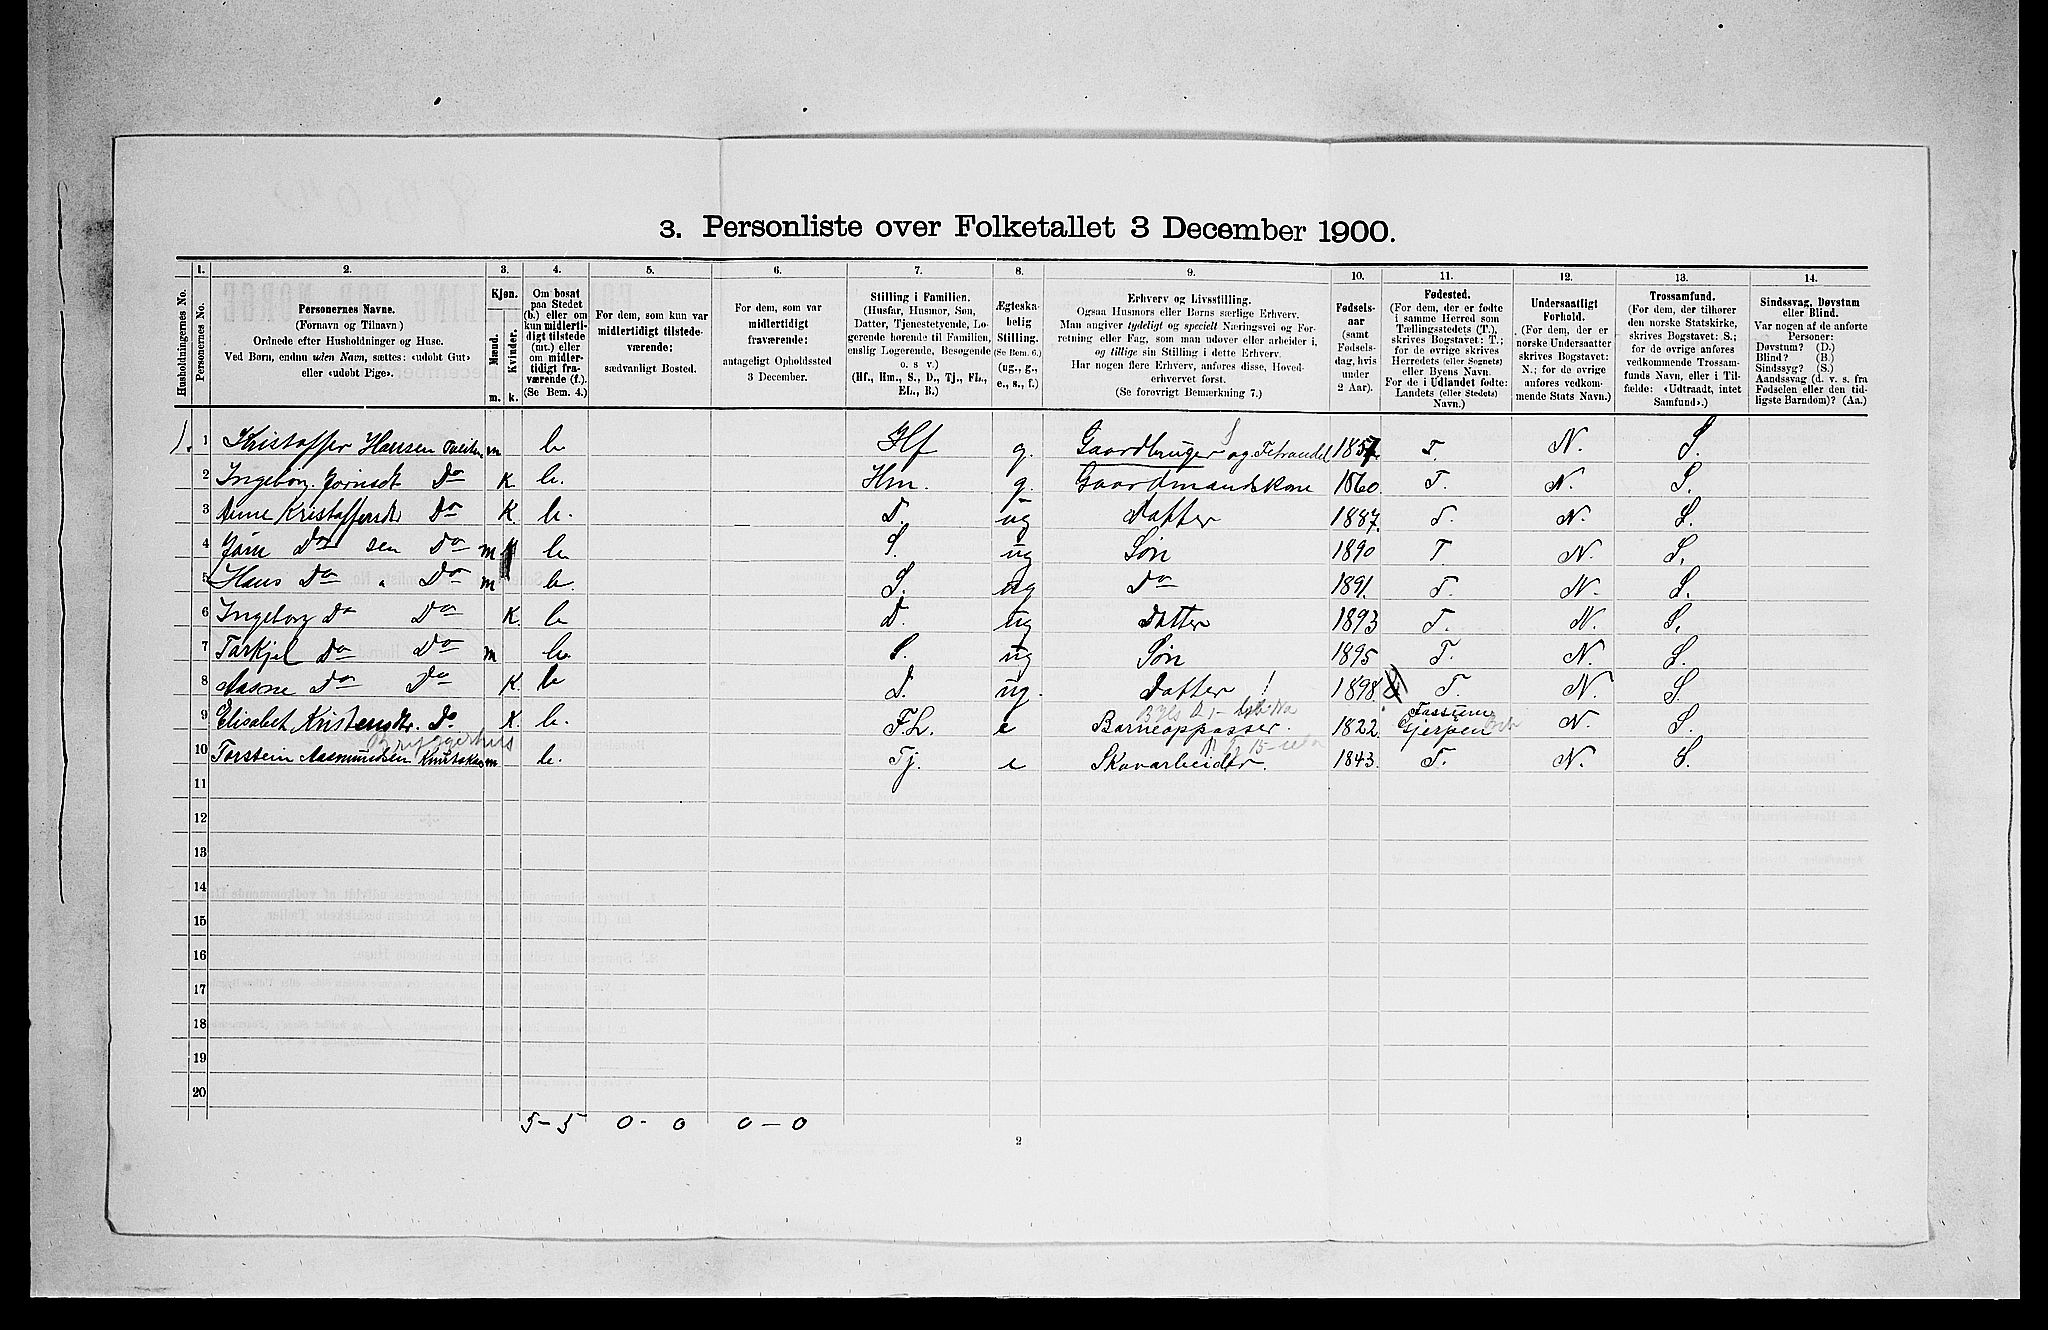 3. Personliste over Folketallet 3 December 1900.
Husholdningernes No.
1.
Personernes No.
2.
Personernes Navne.
(Fornavn og Tilnavn)
Ordnede efter Husholdninger og Huse.
Ved Børn, endnu uden Navn, sættes: «udøbt Gut»
eller «udøbt Pige».
3.
Kjøn.
Mænd.
Kvinder.
m. k.
4.
Om bosat
paa Stedet
(b.) eller om
kun midlerti-
digt tilstede
(mt.) eller
om midler-
tidigt fra-
værende (f.).
(Se Bem. 4.)
5.
For dem, som kun var
midlertidigt tilstede-
værende:
sædvanligt Bosted.
6.
For dem, som var
midlertidigt
fraværende:
antageligt Opholdssted
3 December.
7.
Stilling i Familien.
(Husfar, Husmor, Søn,
Datter, Tjenestetyende, Lo-
gerende hørende til Familien,
enslig Logerende, Besøgende
o. s v.)
(Hf., Hm., S., D., Tj., FL.,
EL., B.)
8.
Ægteska-
belig
Stilling.
(Se Bem. 6.)
(ug., g.,
e., s., f.)
9.
Erhverv og Livsstilling.
Ogsaa Husmors eller Børns særlige Erhverv.
Man angiver tydeligt og specielt Næringsvei og For-
retning eller Fag, som man udøver eller arbeider i,
og tillige sin Stilling i dette Erhverv.
Har nogen flere Erhverv, anføres disse, Hoved-
erhvervet først.
(Se forøvrigt Bemærkning 7.)
10.
Fødsels-
aar
(samt
Fødsels-
dag, hvis
under
2 Aar).
11.
Fødested.
(For dem, der er fødte
i samme Herred som
Tællingsstedets (T.),
skrives Bogstavet: T.;
for de øvrige skrives
Herredets (eller Sognets)
eller Byens Navn.
For de i Udlandet fødte:
Landets (eller Stedets)
Navn.)
12.
Undersaatligt
Forhold.
(For dem, der er
norske Undersaatter
skrives Bogstavet:
N.; for de øvrige
anføres vedkom-
mende Stats Navn.)
13.
Trossamfund.
(For dem, der tilhører
den norske Statskirke,
skrives Bogstavet: S.;
for de øvrige anføres
vedkommende Trossam-
funds Navn, eller i Til-
fælde: «Udtraadt, intet
Samfund».)
14.
Sindssvag, Døvstum
eller Blind.
Var nogen af de anførte
Personer:
Døvstum? (D.)
Blind? (B.)
Sindssyg? (S.)
Aandssvag (d. v. s. fra
Fødselen eller den tid-
ligste Barndom)? (Aa.)
1. 1 Kristoffer Hansen m b Hf g. Gaardbruger og 1857 T. N. S.
2 Ingeborg Jørnsdt Do K. b. Hm. g. Gaardmandskone 1860. T. N. S.
3 Anne Kristoffersdt Do K. b. D. ug Datter 1887. T. N. S.
4 Jørn Do sen Do m b S. ug Søn 1890 T. N. S.
5 Hans Do " Do m b. S. ug Do 1891. T. N. S.
6 Ingeborg Do Do K. b D. ug Datter 1893 T. N. S.
7 Tarkjel Do Do m b. S. ug Søn 1895 T. N. S.
8 Aasne Do Do K. b D. ug. Datter 1898. T. N. S
9 Elisabet Kristensdtr. Do K. b. F.L. e Barneopposser. 1822. Fossum Gjerpen N. S.
10 Torstein Aasmundsen m b. Tj. e Skovarbeider. 1843. T. N. S.
11
12
13
14
15
16
17
18
19
20
5-5 0-0 0-0
2